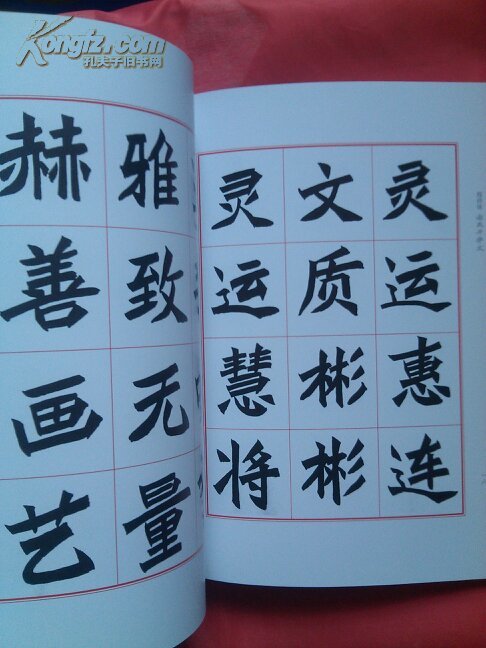 Kongfz.com
孔夫子旧书网
灵运惠连
文质彬彬
灵运慧将
雅致无量
赫善画艺